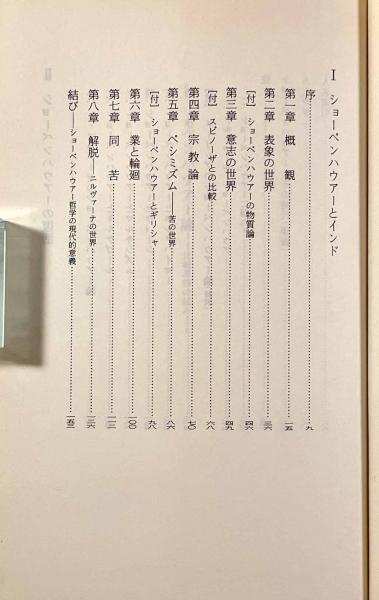 I　ショーペンハウアーとインド
序……九
第一章　概　観……一五
第二章　表象の世界……三六
〔付〕　ショーペンハウアーの物質論……四六
第三章　意志の世界……四九
〔付〕　スピノーザとの比較……六八
第四章　宗教論……七〇
第五章　ペシミズム――苦の世界……八六
〔付〕　ショーペンハウアーとギリシャ……九八
第六章　業と輪廻……一〇〇
第七章　同　苦……一一三
第八章　解脱――ニルヴァーナの世界……一三六
結び――ショーペンハウアー哲学の現代的意義……一五三